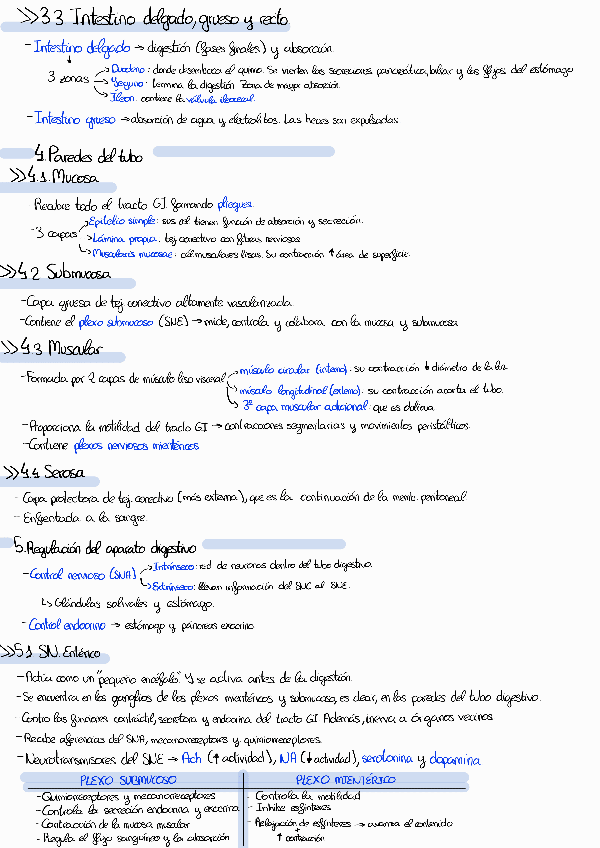 >>3.3 Intestino delgado, grueso y recto
- Intestino delgado → digestión (fases finales) y absorción
3 zonas
→ Duodeno: donde desemboca el quimo. Se vierten las secreciones pancreática, biliar y los flujos del estómago
→ Yeyuno: termina la digestión. Zona de mayor absorción.
→ Íleon: contiene la válvula ileocecal.
- Intestino grueso → absorción de agua y electrolitos. Las heces son expulsadas
4. Paredes del tubo
>>4.1. Mucosa
Recubre todo el tracto GI formando pliegues.
- 3 capas
→ Epitelio simple: sus cél tienen función de absorción y secreción.
→ Lámina propia: tej conectivo con fibras nerviosas
→ Muscularis mucosae: cél musculares lisas. Su contracción ↑ área de superficie.
>>4.2 Submucosa
- Capa gruesa de tej conectivo altamente vascularizada
- Contiene el plexo submucoso (SNE) → mide, controla y colabora con la mucosa y submucosa
>>4.3 Muscular
- Formada por 2 capas de músculo liso visceral
→ músculo circular (interno): su contracción ↓ diámetro de la luz
→ músculo longitudinal (externo): su contracción acorta el tubo.
→ 3ª capa muscular adicional: que es oblicua
- Proporciona la motilidad del tracto GI → contracciones segmentarias y movimientos peristálticos.
- Contiene plexos nerviosos mientéricos
>>4.4 Serosa
- Capa protectora de tej. conectivo (más externa), que es la continuación de la memb. peritoneal
- Enfrentada a la sangre.
5. Regulación del aparato digestivo
- Control nervioso (SNA)
→ Intrínseco: red de neuronas dentro del tubo digestivo.
→ Extrínseco: llevan información del SNC al SNE.
↳ Glándulas salivales y estómago.
- Control endocrino → estómago y páncreas exocrino
>>5.1 SN. Entérico
- Actúa como un "pequeño encéfalo" y se activa antes de la digestión.
- Se encuentra en los ganglios de los plexos mientéricos y submucoso, es decir, en las paredes del tubo digestivo.
- Contro las funciones contráctil, secretora y endocrina del tracto GI. Además, inerva a órganos vecinos
- Recibe aferencias del SNA, mecanoreceptores y quimiorreceptores.
- Neurotransmisores del SNE → Ach (↑ actividad), NA (↓ actividad), serotonina y dopamina
PLEXO SUBMUCOSO
- Quimiorreceptores y mecanoreceptores
- Controla la secreción endocrina y exocrina
- Contracción de la mucosa muscular
- Regula el flujo sanguíneo y la absorción
PLEXO MIENTÉRICO
- Controla la motilidad
- Inhibe esfínteres
- Relajación de esfínteres → avanza el contenido
↑ contracción